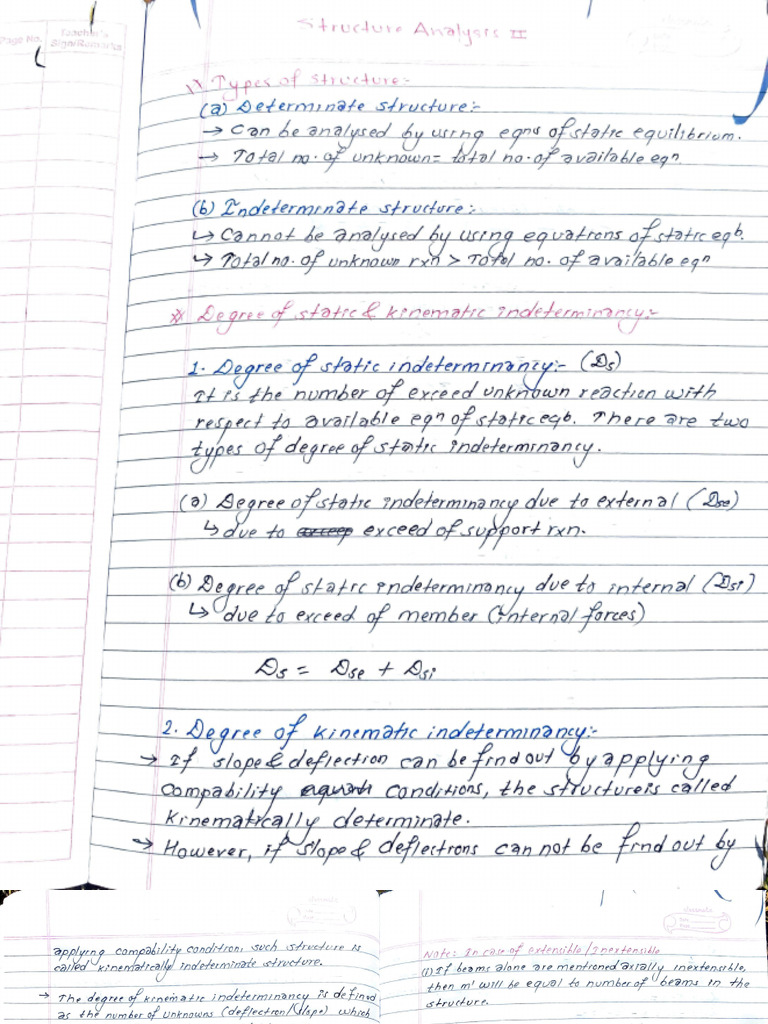 Page No.
Teacher's
Sign/Remarks
Structure Analysis II
1) Types of structure:-
(a) Determinate structure:-
→ Can be analysed by using eqns of static equilibrium.
→ Total no. of unknown = total no. of available eqn.
(b) Indeterminate structure:-
↳ Cannot be analysed by using equations of static eqb.
↳ Total no. of unknown rxn > Total no. of available eqn
* Degree of static & kinematic indeterminancy:-
1. Degree of static indeterminancy:- (Ds)
It is the number of exceed unknown reaction with
respect to available eqn of static eqb. There are two
types of degree of static indeterminancy.
(a) Degree of static indeterminancy due to external (Dse)
↳ due to exceed of support rxn.
(b) Degree of static indeterminancy due to internal (Dsi)
↳ due to exceed of member (internal forces)
Ds = Dse + Dsi
2. Degree of kinematic indeterminancy:-
→ If slope & deflection can be find out by applying
compability conditions, the structure is called
kinematically determinate.
→ However, if slope & deflections can not be find out by
applying compability condition, such structure is
called kinematically indeterminate structure.
→ The degree of kinematic indeterminancy is defined
as the number of unknowns (deflection/slope) which
Note: In case of extensible/Inextensible
(i) If beams alone are mentioned axially inextensible,
then m' will be equal to number of beams in the
structure.